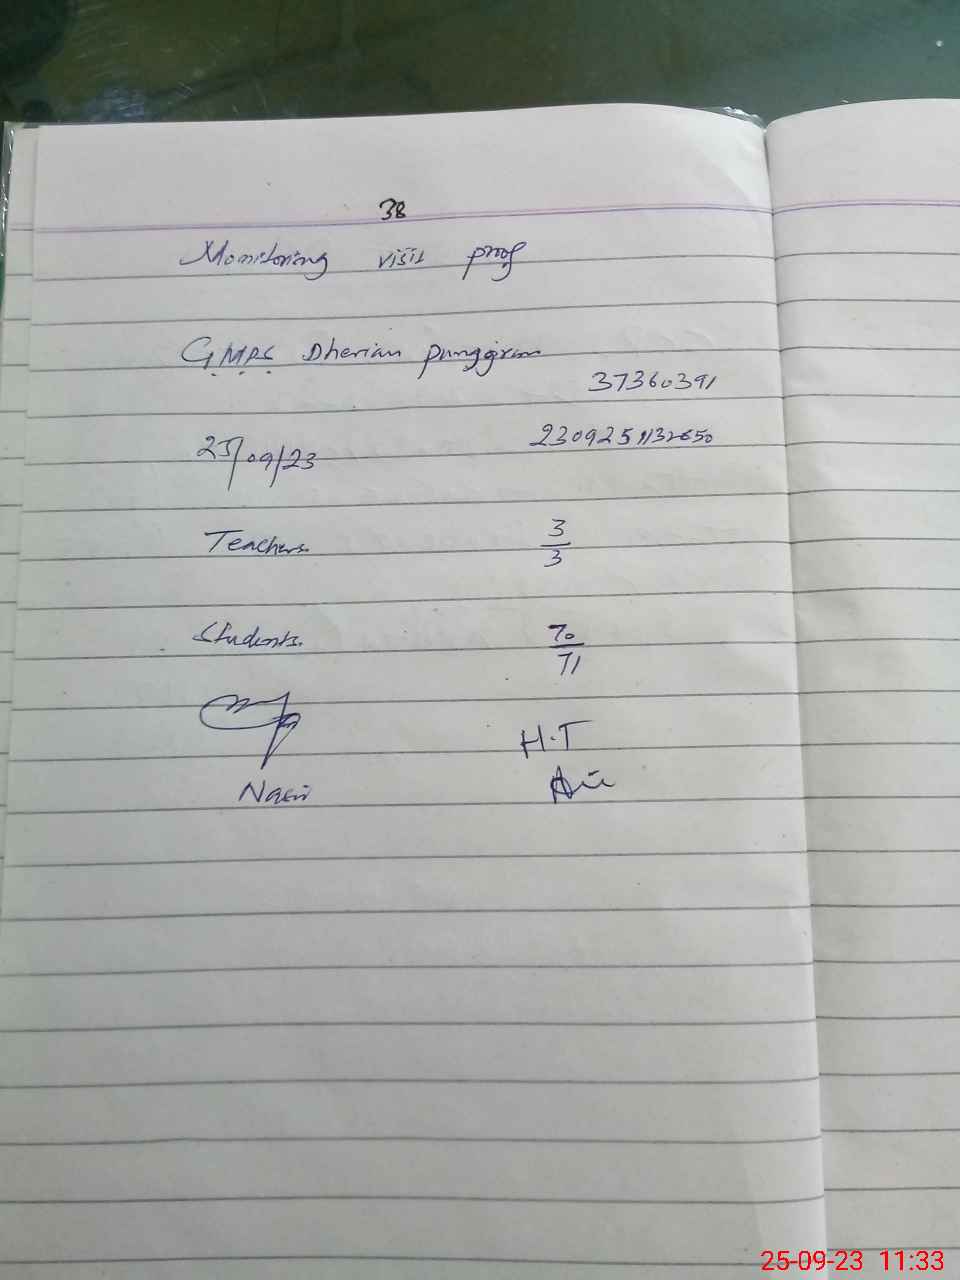 38
Monitoring visit proof
G.M.P.S. Dherian punggran
37360391
25/09/23
Teachers 3/3
Students. 70/71
H.T
Nasir
25-09-23 11:33